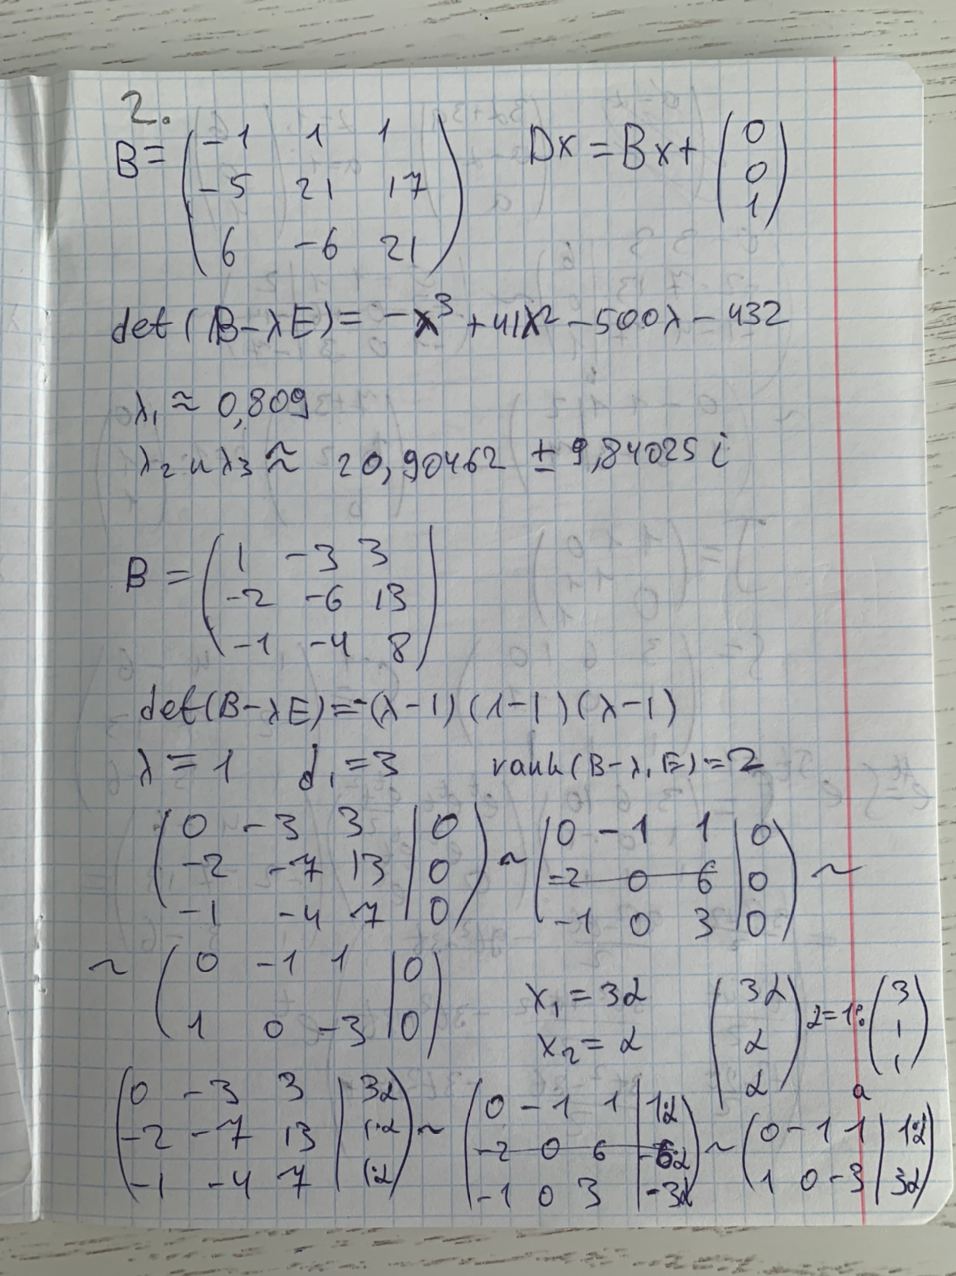 2.
B = ( -1 1 1
-5 21 17
6 -6 21 )
Dx = Bx + ( 0
0
1 )
det (B-λE) = -λ³ + 41λ² - 500λ - 432
λ₁ ≈ 0,809
λ₂ и λ₃ ≈ 20,90462 ± 9,84025 i
B = ( 1 -3 3
-2 -6 13
-1 -4 8 )
det(B-λE) = -(λ-1)(λ-1)(λ-1)
λ = 1 d₁ = 3 rank(B-λ₁E) = 2
( 0 -3 3 | 0
-2 -7 13 | 0
-1 -4 7 | 0 ) ~
( 0 -1 1 | 0
-2 0 6 | 0
-1 0 3 | 0 ) ~
~ ( 0 -1 1 | 0
1 0 -3 | 0 )
x₁ = 3α
x₂ = α
( 3α
α
α ) α=1: ( 3
1
1 )
( 0 -3 3 | 3α
-2 -7 13 | 1·α
-1 -4 7 | 1·α ) ~
( 0 -1 1 | 1·α
-2 0 6 | -6α
-1 0 3 | -3α ) ~
a
( 0 -1 1 | 1·α
1 0 -3 | 3α )